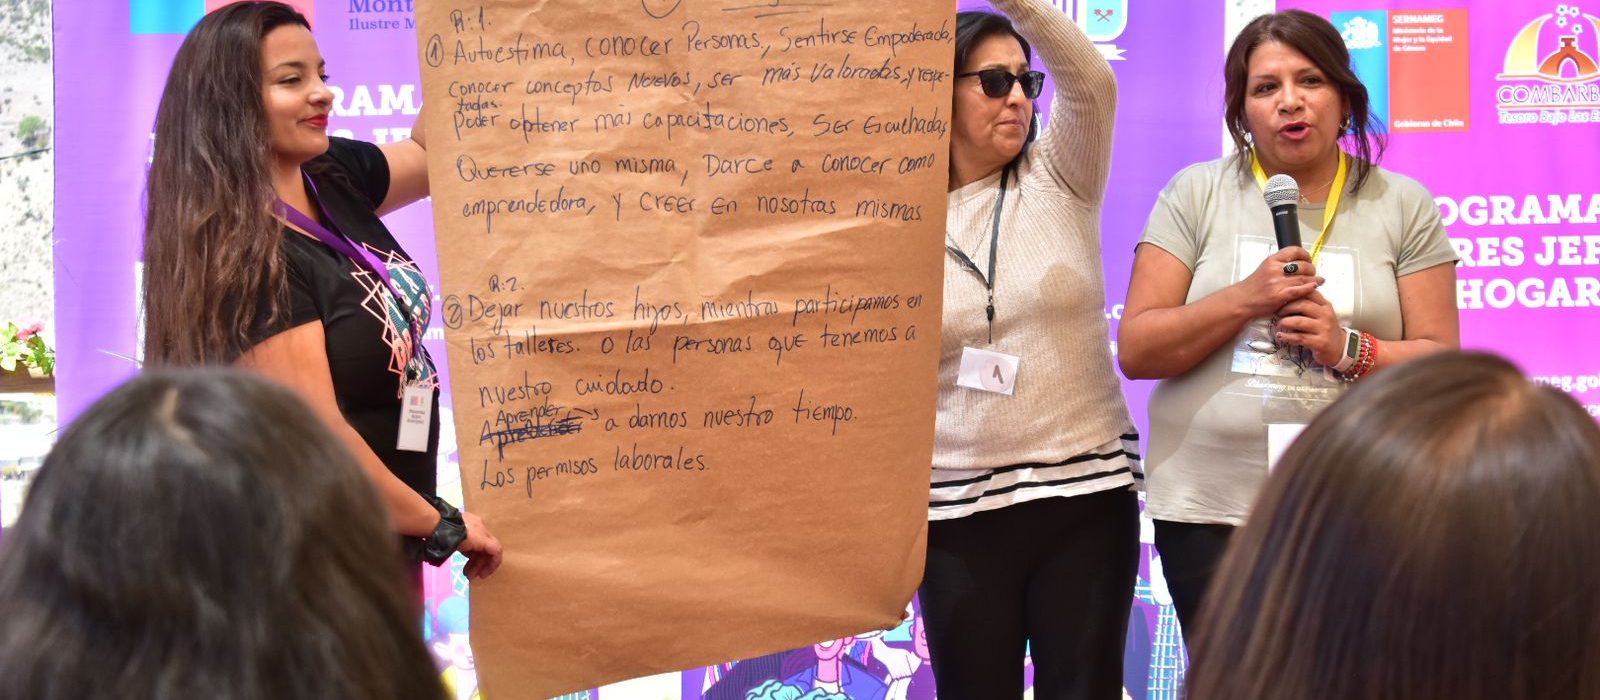 Ilustre M
SERNAMEG
Ministerio de la
Mujer y la Equidad
de Género
Gobierno de Chile
COMBARB
Tesoro Bajo Las E
RAMA
OGRAMA
RES JEF
HOGAR
R:1.
① Autoestima, conocer Personas, Sentirse Empoderada,
conocer conceptos nuevos, ser más valoradas, y respe-
tadas.
Poder obtener más capacitaciones, Ser Escuchadas
Quererse uno misma, Darce a conocer como
emprendedora, y creer en nosotras mismas
R:2.
② Dejar nuestros hijos, mientras participamos en
los talleres. o las personas que tenemos a
nuestro cuidado.
Aprender
a darnos nuestro tiempo.
Los permisos laborales.